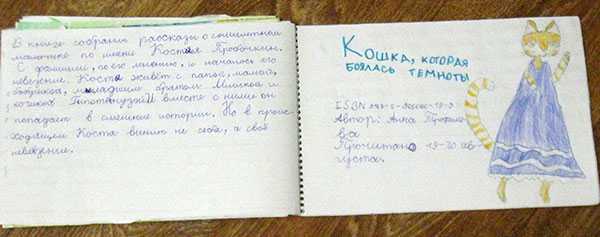 В книге собраны рассказы о
мальчике по имени Костя Пробочкин.
С фамилии, по его мнению, и началось его
невезение. Костя живёт с папой, мамой,
бабушкой, младшим братом Мишкой и
кошкой вместе с ними он
попадает в смешные истории. Но в проис-
ходящем Костя винит не себя, а своё
невезение.
КОШКА, КОТОРАЯ
БОЯЛАСЬ ТЕМНОТЫ
ISBN
Автор: Анна
ва
Прочитано 19-20 ав-
густа.